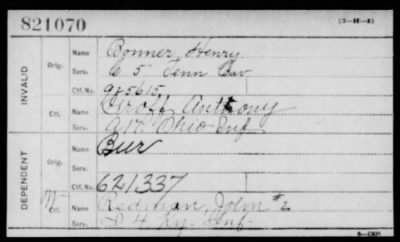 821070 (3-H-4)
INVALID
Orig. Name Bonner, Henry
Serv. C 5 Tenn Cav
Ctf. No. 985615
Ctf. Name Groff, Anthony
Serv. Ohio Inf
DEPENDENT
Orig. Name Bur
Serv.
Ctf. No. 621337
Ctf. Name Redman, John #2
Serv. I 4 Ky. Inf